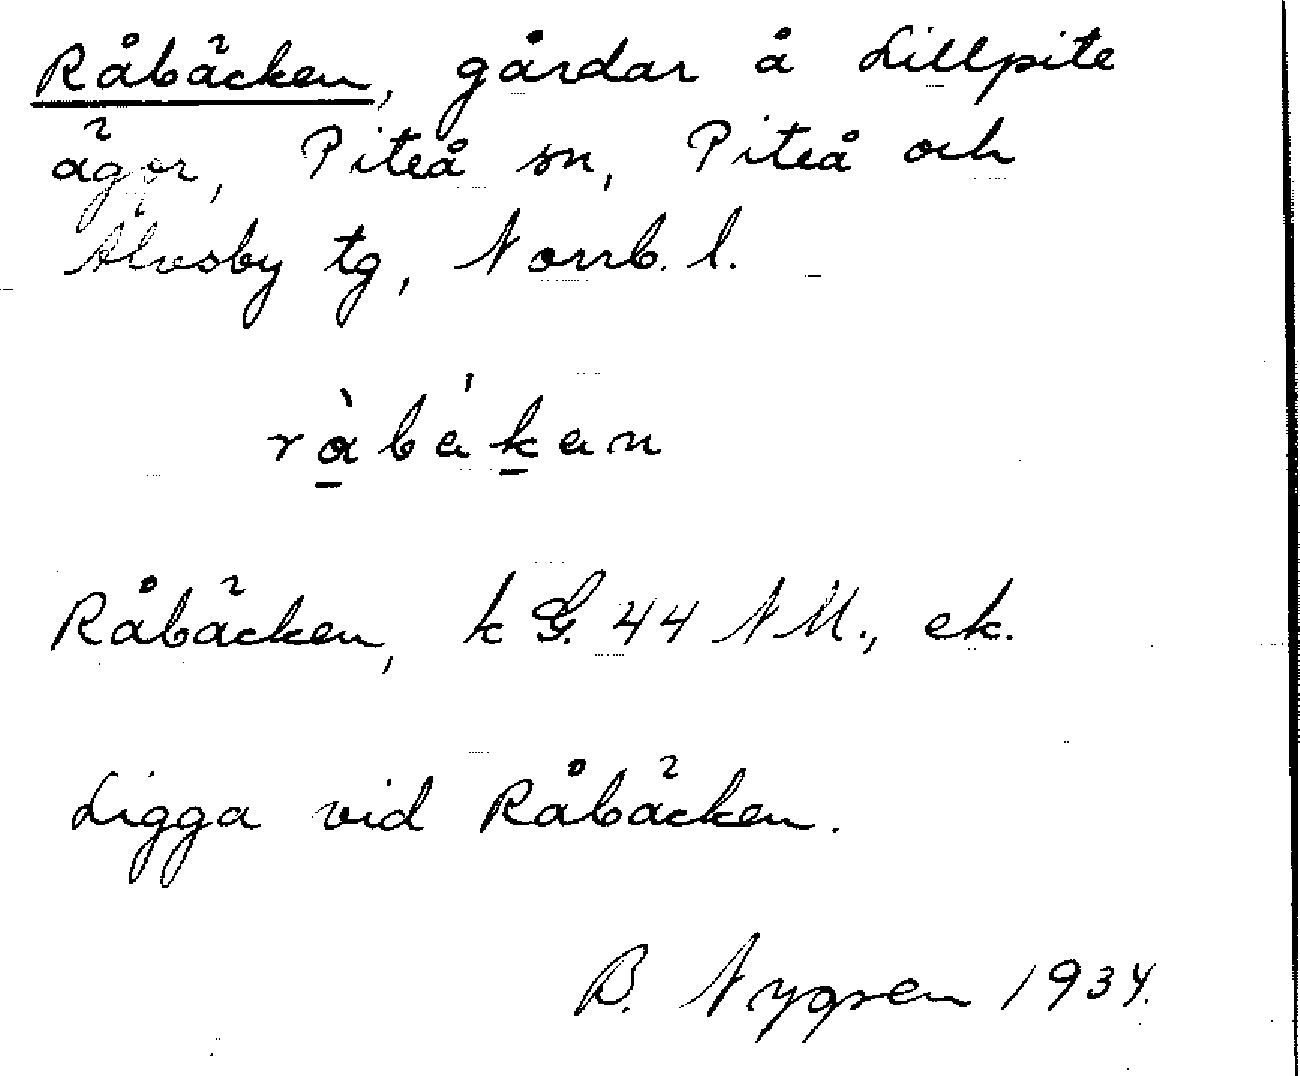 Råbäcken, gårdar å Lillpite
ägor, Piteå sn, Piteå och
Älvsby tg, Norrb. l.
Råbäcken, k G. 44 NM., ek.
Ligga vid Råbäcken.
B. Nygren 1934.